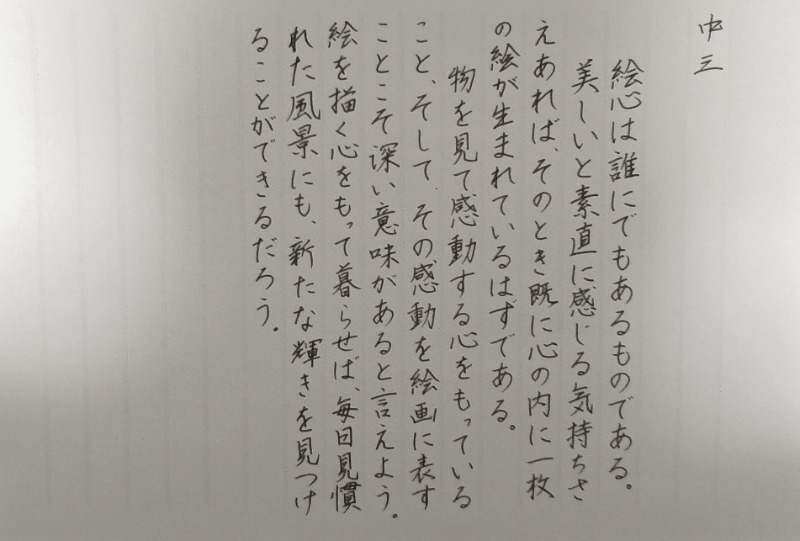 中三
絵心は誰にでもあるものである。
美しいと素直に感じる気持ちさ
えあれば、そのとき既に心の内に一枚
の絵が生まれているはずである。
物を見て感動する心をもっている
こと、そして、その感動を絵画に表す
ことこそ深い意味があると言えよう。
絵を描く心をもって暮らせば、毎日見慣
れた風景にも、新たな輝きを見つけ
ることができるだろう。